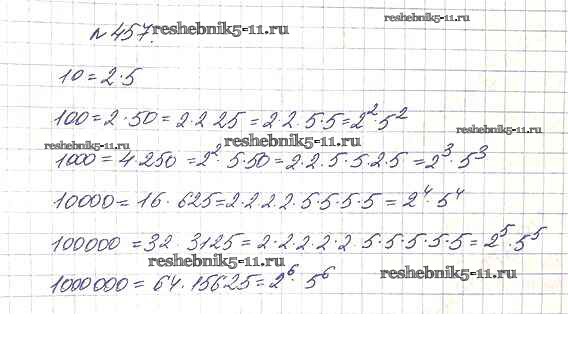 №457. reshebnik5-11.ru reshebnik5-11.ru
10 = 2·5
100 = 2·50 = 2·2 25 = 2·2·5·5 = 2²·5²
reshebnik5-11.ru reshebnik5-11.ru reshebnik5-11.ru
1000 = 4·250 = 2²·5·50 = 2·2·5·5·2·5 = 2³·5³
10000 = 16·625 = 2·2·2·2·5·5·5·5 = 2⁴·5⁴
100000 = 32·3125 = 2·2·2·2·2·5·5·5·5·5 = 2⁵·5⁵
reshebnik5-11.ru reshebnik5-11.ru
1000000 = 64·15625 = 2⁶·5⁶